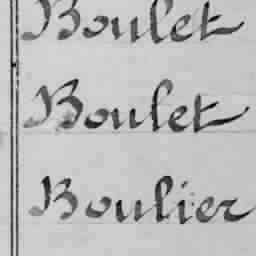 Boulet
Boulet
Boulier